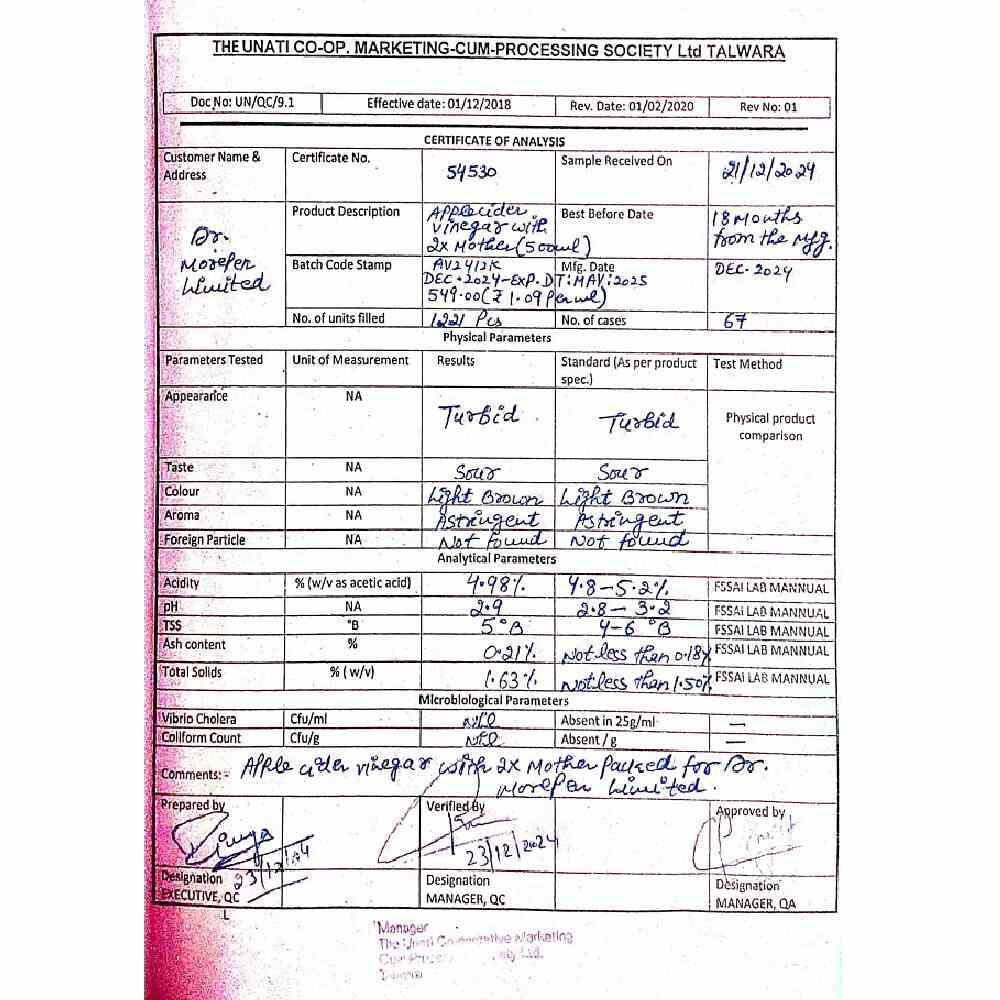 THE UNATI CO-OP. MARKETING-CUM-PROCESSING SOCIETY Ltd TALWARA
Doc No: UN/QC/9.1 Effective date: 01/12/2018 Rev. Date: 01/02/2020 Rev No: 01
CERTIFICATE OF ANALYSIS
Customer Name & Address
Dr. Morepen Limited
Certificate No. 54530 Sample Received On 21/12/2024
Product Description Apple cider vinegar with 2x Mother (500ml) Best Before Date 18 Months from the Mfg.
Batch Code Stamp AV2412K DEC.2024-EXP.DT:MAY:2025 549.00(₹ 1.09 Per ml) Mfg. Date DEC-2024
No. of units filled 1221 Pcs No. of cases 67
Physical Parameters
Parameters Tested Unit of Measurement Results Standard (As per product spec.) Test Method
Appearance NA Turbid Turbid Physical product comparison
Taste NA Sour Sour
Colour NA Light Brown Light Brown
Aroma NA Astringent Astringent
Foreign Particle NA Not found Not found
Analytical Parameters
Acidity % (w/v as acetic acid) 4.98% 4.8-5.2% FSSAI LAB MANNUAL
pH NA 2.9 2.8-3.2 FSSAI LAB MANNUAL
TSS °B 5°B 4-6 °B FSSAI LAB MANNUAL
Ash content % 0.21% Not less than 0.18% FSSAI LAB MANNUAL
Total Solids % (w/v) 1.63% Not less than 1.50% FSSAI LAB MANNUAL
Microbiological Parameters
Vibrio Cholera Cfu/ml Nil Absent in 25g/ml —
Coliform Count Cfu/g Nil Absent / g —
Comments:- Apple cider vinegar with 2x Mother Packed for Dr.
Morepen Limited.
Prepared by Verified By Approved by
23/12/24 23/12/2024
Designation Designation Designation
EXECUTIVE, QC MANAGER, QC MANAGER, QA
Manager
The Unati Co-operative Marketing